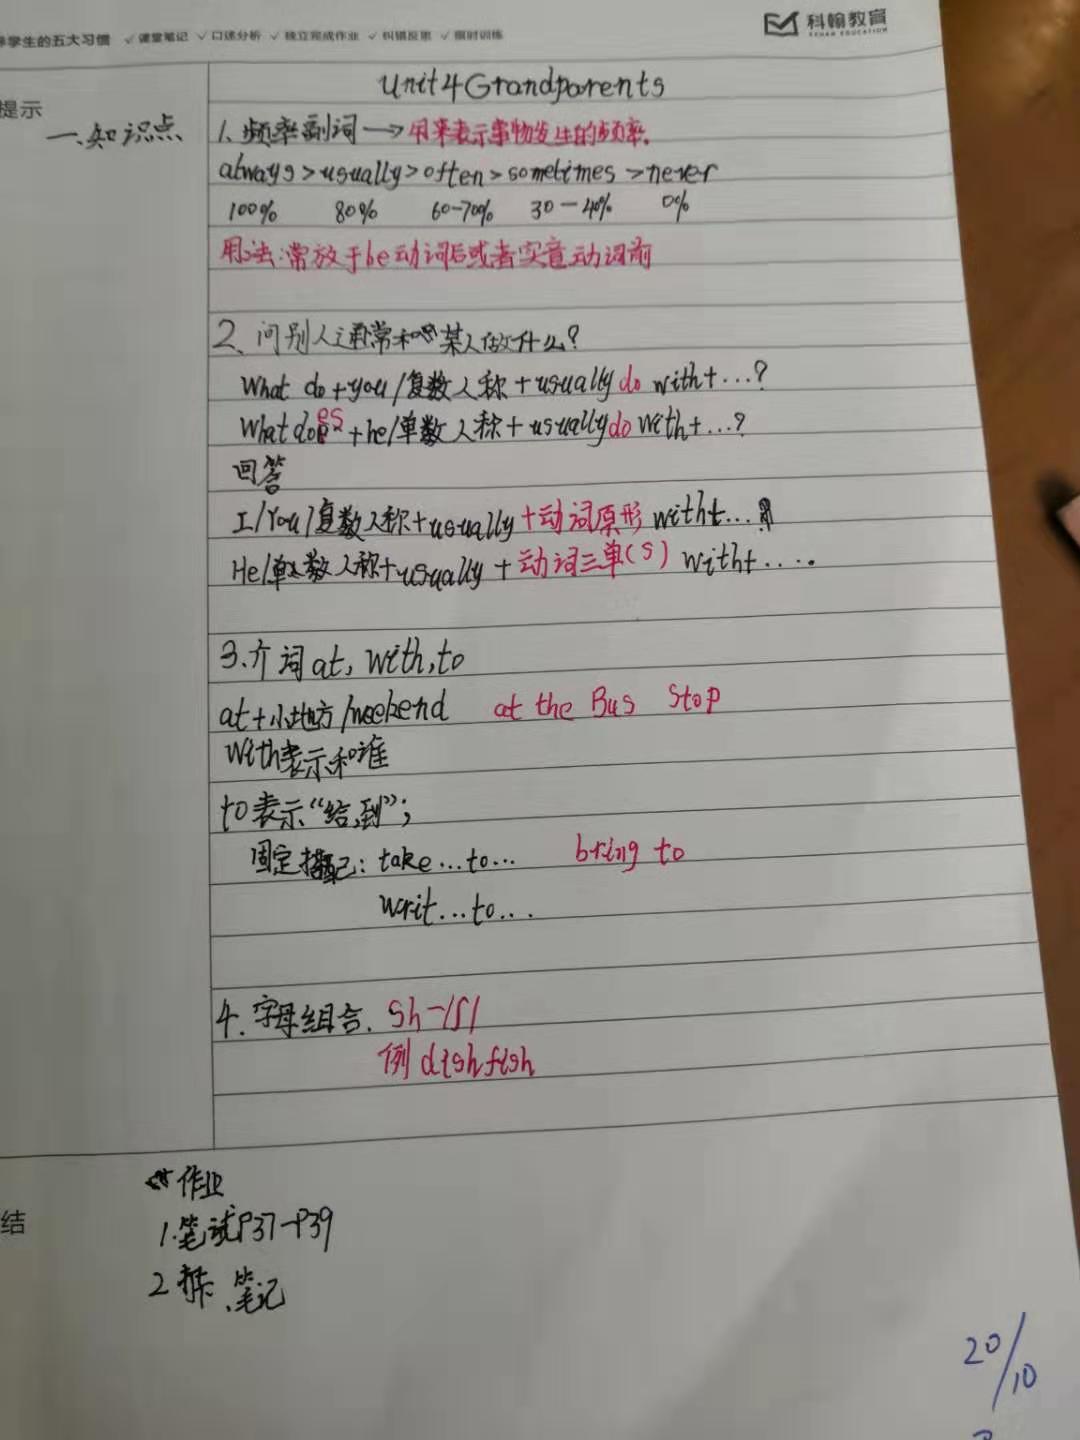 养学生的五大习惯 ✓课堂笔记 ✓口述分析 ✓独立完成作业 ✓纠错反思 ✓限时训练
科翰教育
KEHAN EDUCATION
Unit4Grandparents
提示
一、知识点
1、频率副词→用来表示事物发生的频率.
always>usually>often>sometimes>never
100% 80% 60-70% 30-40% 0%
用法:常放于be动词后或者实意动词前
2、问别人通常和某人做什么?
What do+you/复数人称+usually do with+...?
What does+he/单数人称+usually do with+...?
回答
I/You/复数人称+usually+动词原形 with+...
He/单数人称+usually+动词三单(s) with+....
3.介词at,with,to
at+小地方/weekend at the Bus Stop
with表示和谁
to表示“给,到”;
固定搭配:take...to... bring to
writ...to...
4.字母组合. sh-/ʃ/
例 dish fish
结
作业
1.笔试P37-P39
2 笔记
20/10